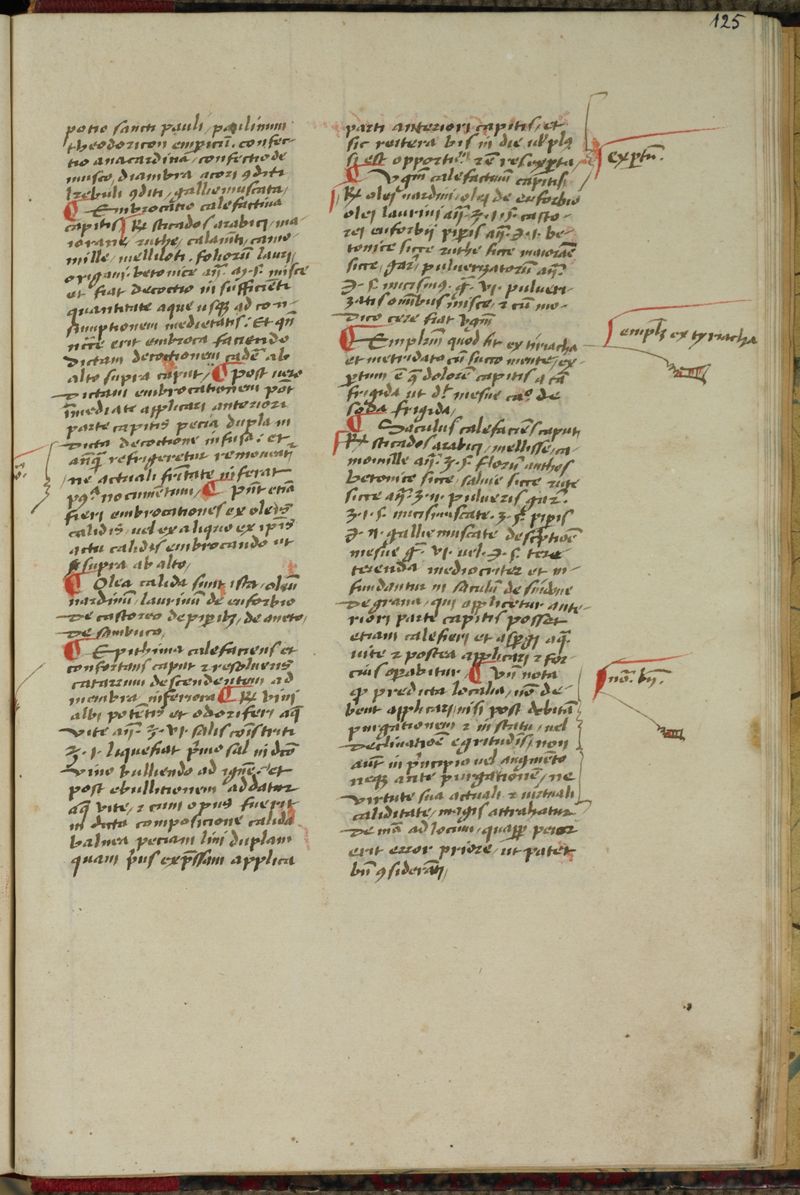 125
potio sancti pauli / paulinum
theodoricon empericũ. confec-
tio anacardina / confectio de
musco, diambra acori ꝯditi
kebuli ꝯditi / gallie muscata /
¶ Embrocatio calefactiua
capitis ℞ sticados arabici / ma-
iorane, ruthe / calamĩti / camo-
mille / melliloti . foliorum lauri,
origani . betonice añ. m. s. misce
et fiat decoctio in sufficiẽti
quantitate aque usqꝫ ad con-
sumptionem medietatis : Et qñ
necce erit embroca faciendo
dictam decoctionem cadẽ ab
alto supra caput / ¶ post uero
dictam embrocationem põt
ĩmediate applicari anteriori
parte capitis pecia dupla in
dicta decoctione infusa : et
añqꝫ refrigeretur remoueatᷣ
ne actuali fritate inferat
nocumentum / ¶ Pñt etiã
fieri embrocationes ex oleis
calidis, uel ex aliquo ex ip̃is
actu calidis embrocando ut
supra ab alto /
¶ Olea calida sunt ista / oleũ
nardinũ / laurinũ de euforbio
de castoreo de piperibꝫ / de aneto /
de sambuco,
¶ Epithima calefaciens et
confortans caput ⁊ resoluens
catarrum descendentem ad
membra inferiora ¶ ℞ vini
albi potẽtis et odoriferi aq̃
vite añ. ʒ. vi. salis cõtriti
ʒ. i. liquefiat primo sal in dc̃o
vino bulliendo ad ignẽ. et
post ebullitionem addatur
aq̃ vite / ⁊ cum opus fuerit
in dicta composicione calida
balnea peciam lini duplam
quam prius expressam applica
parti anteriori capitis / et
sic reitera bis in die uel pluꝫ
si est opportũ, rẽ res exꝑta /
¶ Vngm̃ calefactiuũ capitis
℞ olei nardini / olei de euforbio
olei laurini añ. ʒ. i. s. casto-
rei euforbij piꝑis añ. ℈. i. be-
tonice sicce ruthe sicce maioraẽ
sicce, gar̃. puluerizatorũ añ.
℈. s. nucismusꝫ. g̃. vi. pulueri-
zatis omĩbus misce, ⁊ cũ mo-
dico cere fiat vngm̃
¶ Emplm̃ quod fit ex tiriacha
et metridato cũ succo mente / ex-
ꝑtum ẽ qꝫ dolorẽ capitis a cã
frigida ut dr̃ mesue caº de
soda frigida /
¶ Sacculus calefaciẽs caput
℞ sticados arabici / mellisse / ca-
momille añ. ʒ. s. florũ anthos
betonice sicce, saluie sicce ruthe
sicce añ. ʒ. ij. pulueris gar̃.
ʒ. i. s. nucismuscate. ʒ. s. piꝑis
℈. ij. gallie muscate descptiõe
mesue g̃. vi. uel. ℈. s. tere
terenda mediocriter et in-
fundantur in saculũ de sindone
de grana, qui applicetur ante-
riori parte capitis possꝫ
etiam calefieri et asꝑgi aq̃
uite ⁊ postea applicari ⁊ for-
cius oꝑabitur ¶ Vñ nota
qꝫ predicta localia, nõ de-
bent applicari nisi post debitã
purgationem ⁊ in statu, uel
declinatiõe egritudĩs, non
aut̃ in principio uel augmẽto
neqꝫ ante purgationẽ, ne
virtute sua actuali ⁊ uirtuali
caliditate, magis attrahatur
de mã ad locum, quaꝓp peior
erit error priore, ut patet
bñ ꝯsiderãti /
exꝑtũ.
emplꝫ ex tyriacha
nõ. bñ.